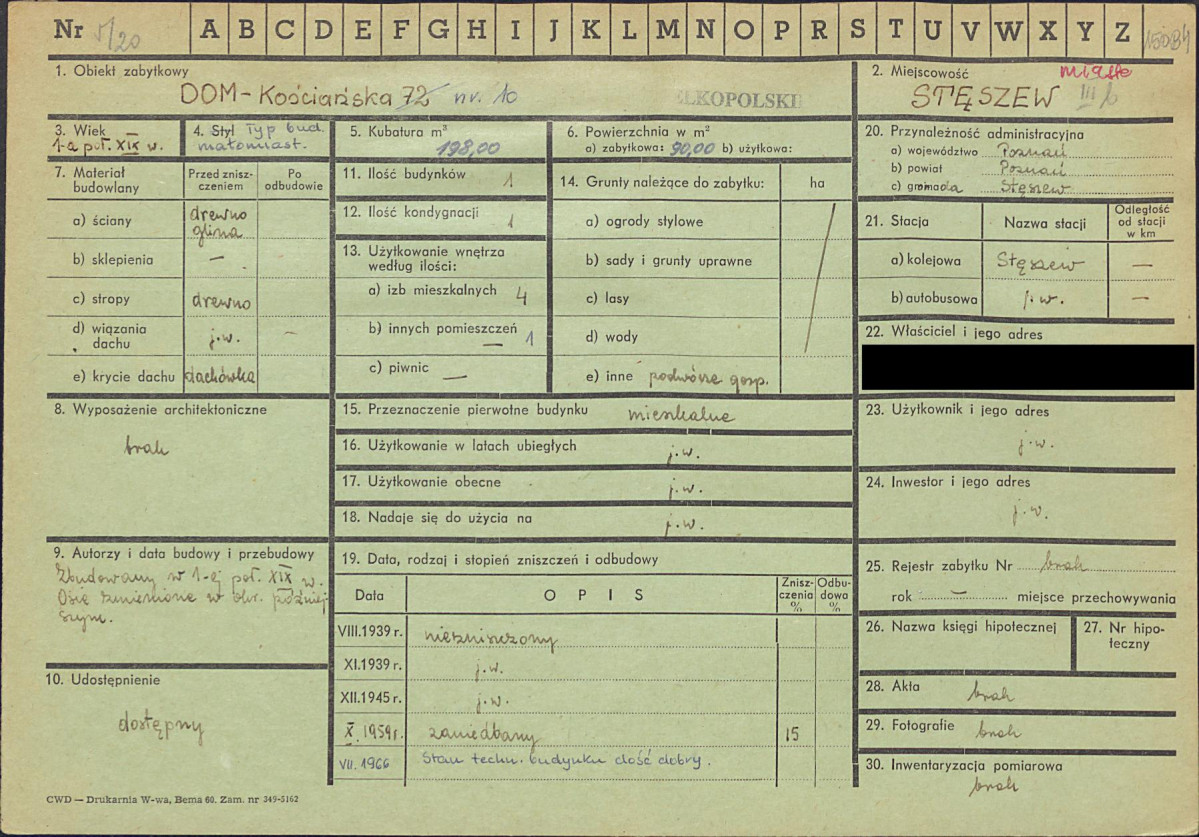 Nr V/20 A B C D E F G H I J K L M N O P R S T U V W X Y Z 15084
1. Obiekt zabytkowy
DOM - Kościańska 72 nr. 10
ELKOPOLSKI
2. Miejscowość miasto
STĘSZEW III b
3. Wiek
1-a poł. XIX w.
4. Styl Typ bud.
małomiast.
5. Kubatura m³
198,00
6. Powierzchnia w m²
a) zabytkowa: 90,00 b) użytkowa:
7. Materiał budowlany
Przed zniszczeniem
Po odbudowie
a) ściany drewno glina
b) sklepienia —
c) stropy drewno
d) wiązania dachu j.w. —
e) krycie dachu dachówka
8. Wyposażenie architektoniczne
brak
9. Autorzy i data budowy i przebudowy
Zbudowany w 1-ej poł. XIX w.
Osie zmienione w okr. później-
szym.
10. Udostępnienie
dostępny
11. Ilość budynków 1
12. Ilość kondygnacji 1
13. Użytkowanie wnętrza
według ilości:
a) izb mieszkalnych 4
b) innych pomieszczeń — 1
c) piwnic —
14. Grunty należące do zabytku: ha
a) ogrody stylowe
b) sady i grunty uprawne
c) lasy
d) wody
e) inne podwórze gosp.
15. Przeznaczenie pierwotne budynku mieszkalne
16. Użytkowanie w latach ubiegłych j.w.
17. Użytkowanie obecne j.w.
18. Nadaje się do użycia na j.w.
19. Data, rodzaj i stopień zniszczeń i odbudowy
Data OPIS Zniszczenia % Odbudowa %
VIII.1939 r. niezniszczony
XI.1939 r. j.w.
XII.1945 r. j.w.
X.1959r. zaniedbany 15
VII.1966 Stan techn. budynku dość dobry.
20. Przynależność administracyjna
a) województwo Poznań
b) powiat Poznań
c) gromada Stęszew
21. Stacja Nazwa stacji Odległość od stacji w km
a) kolejowa Stęszew —
b) autobusowa j.w. —
22. Właściciel i jego adres
23. Użytkownik i jego adres
j.w.
24. Inwestor i jego adres
j.w.
25. Rejestr zabytku Nr brak
rok — miejsce przechowywania
26. Nazwa księgi hipotecznej
27. Nr hipo-
teczny
28. Akta brak
29. Fotografie brak
30. Inwentaryzacja pomiarowa
brak
CWD — Drukarnia W-wa, Bema 60. Zam. nr 349-5162